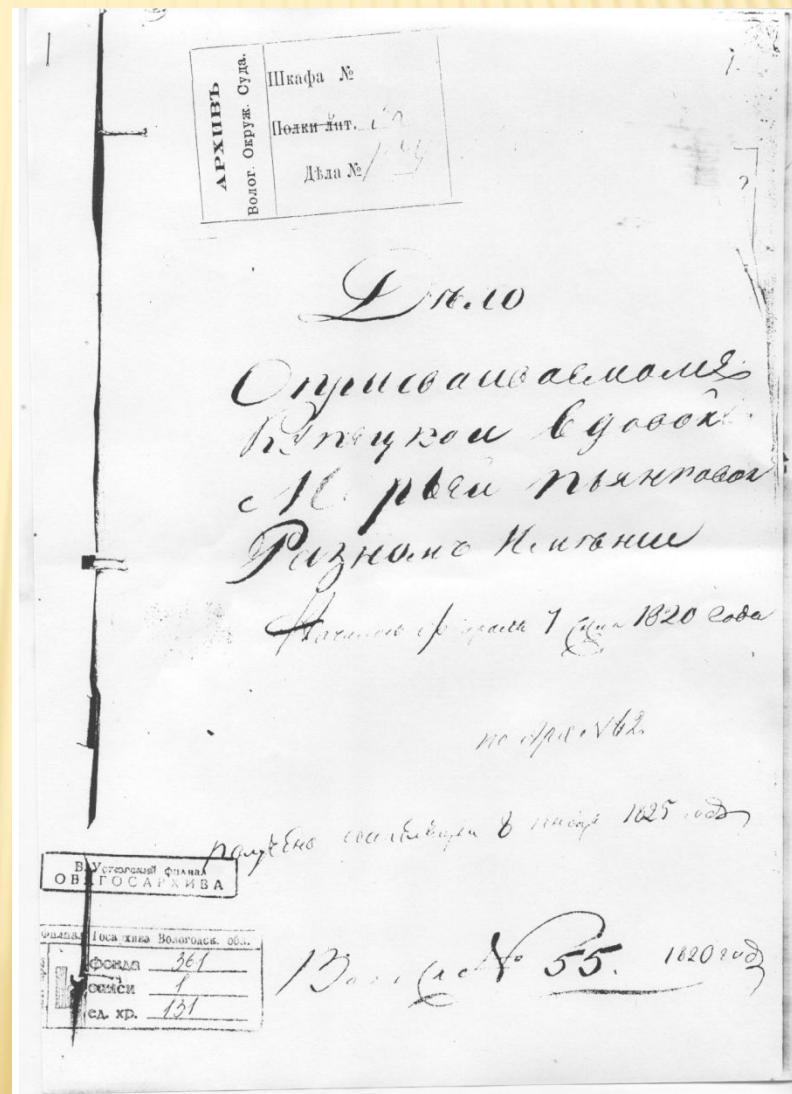 АРХИВЪ
Волог. Окруж. Суда.
Шкафа №
Полки лит.
Дѣла №
Дѣло
О присваиваемомъ
Купецкой вдовой
Марьей Пьянковой
Разномъ Имѣніи
Началось февраля 7 дня 1820 года
по
№ 62.
получено 8 1825 года
В.Устюгский филиал
ОБЛГОСАРХИВА
Филиал Госархива Вологодск. обл.
фонда 361
описи 1
ед. хр. 131
№ 55. 1820 год